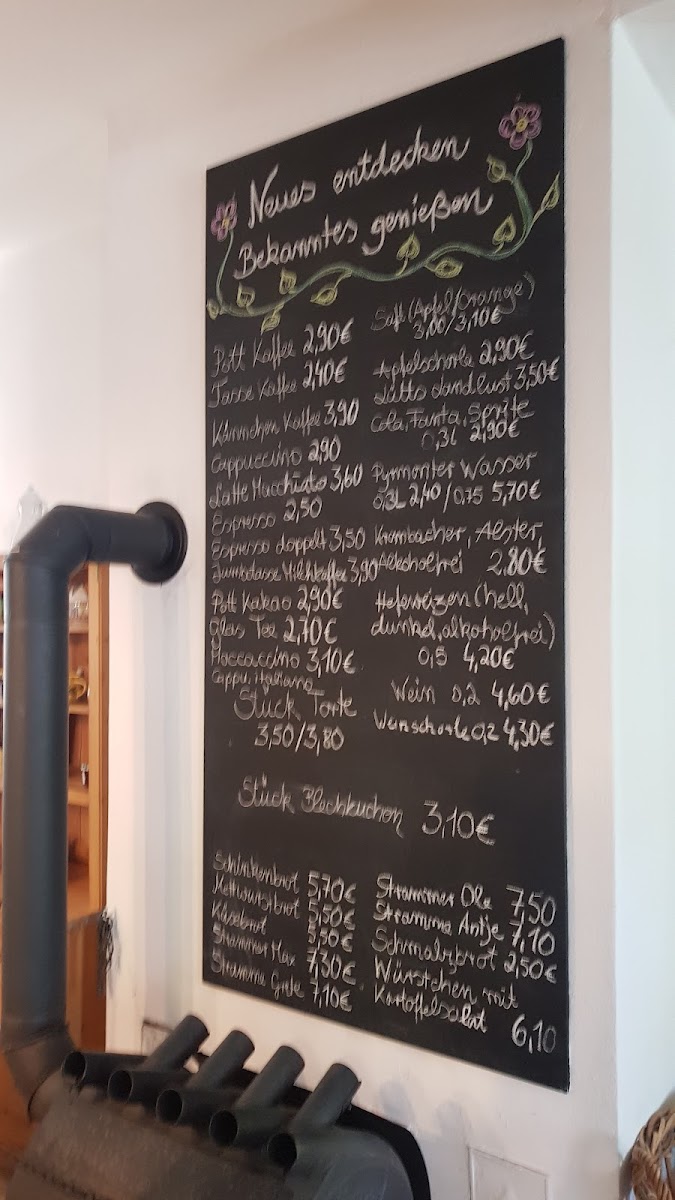 Neues entdecken
Bekanntes genießen
Pott Kaffee 2,90€
Tasse Kaffee 2,40€
Kännchen Kaffee 3,90
Cappuccino 2,90
Latte Macchiato 3,60
Espresso 2,50
Espresso doppelt 3,50
Jumbotasse Milchkaffee 3,90
Pott Kakao 2,90€
Glas Tee 2,70€
Moccaccino 3,10€
Cappu. italiano
Stück Torte
3,50/3,80
Saft (Apfel/Orange)
3,00/3,10€
Apfelschorle 2,90€
Latte Landlust 3,50€
Cola, Fanta, Sprite
0,3L 2,90€
Pyrmonter Wasser
0,3L 2,40/0,75 5,70€
Krombacher, Alster,
Alkoholfrei 2,80€
Hefeweizen (hell,
dunkel, alkoholfrei)
0,5 4,20€
Wein 0,2 4,60€
Weinschorle 0,2 4,30€
Stück Blechkuchen 3,10€
Schinkenbrot 5,70€
Mettwurstbrot 5,50€
Käsebrot 5,50€
Strammer Max 7,30€
Stramme Grete 7,10€
Strammer Ole 7,50
Stramme Antje 7,10
Schmalzbrot 2,50€
Würstchen mit
Kartoffelsalat 6,10